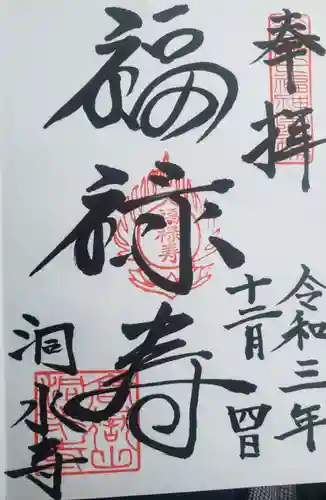 奉拝
令和三年
十二月四日
福禄寿
洞水寺
福禄寿